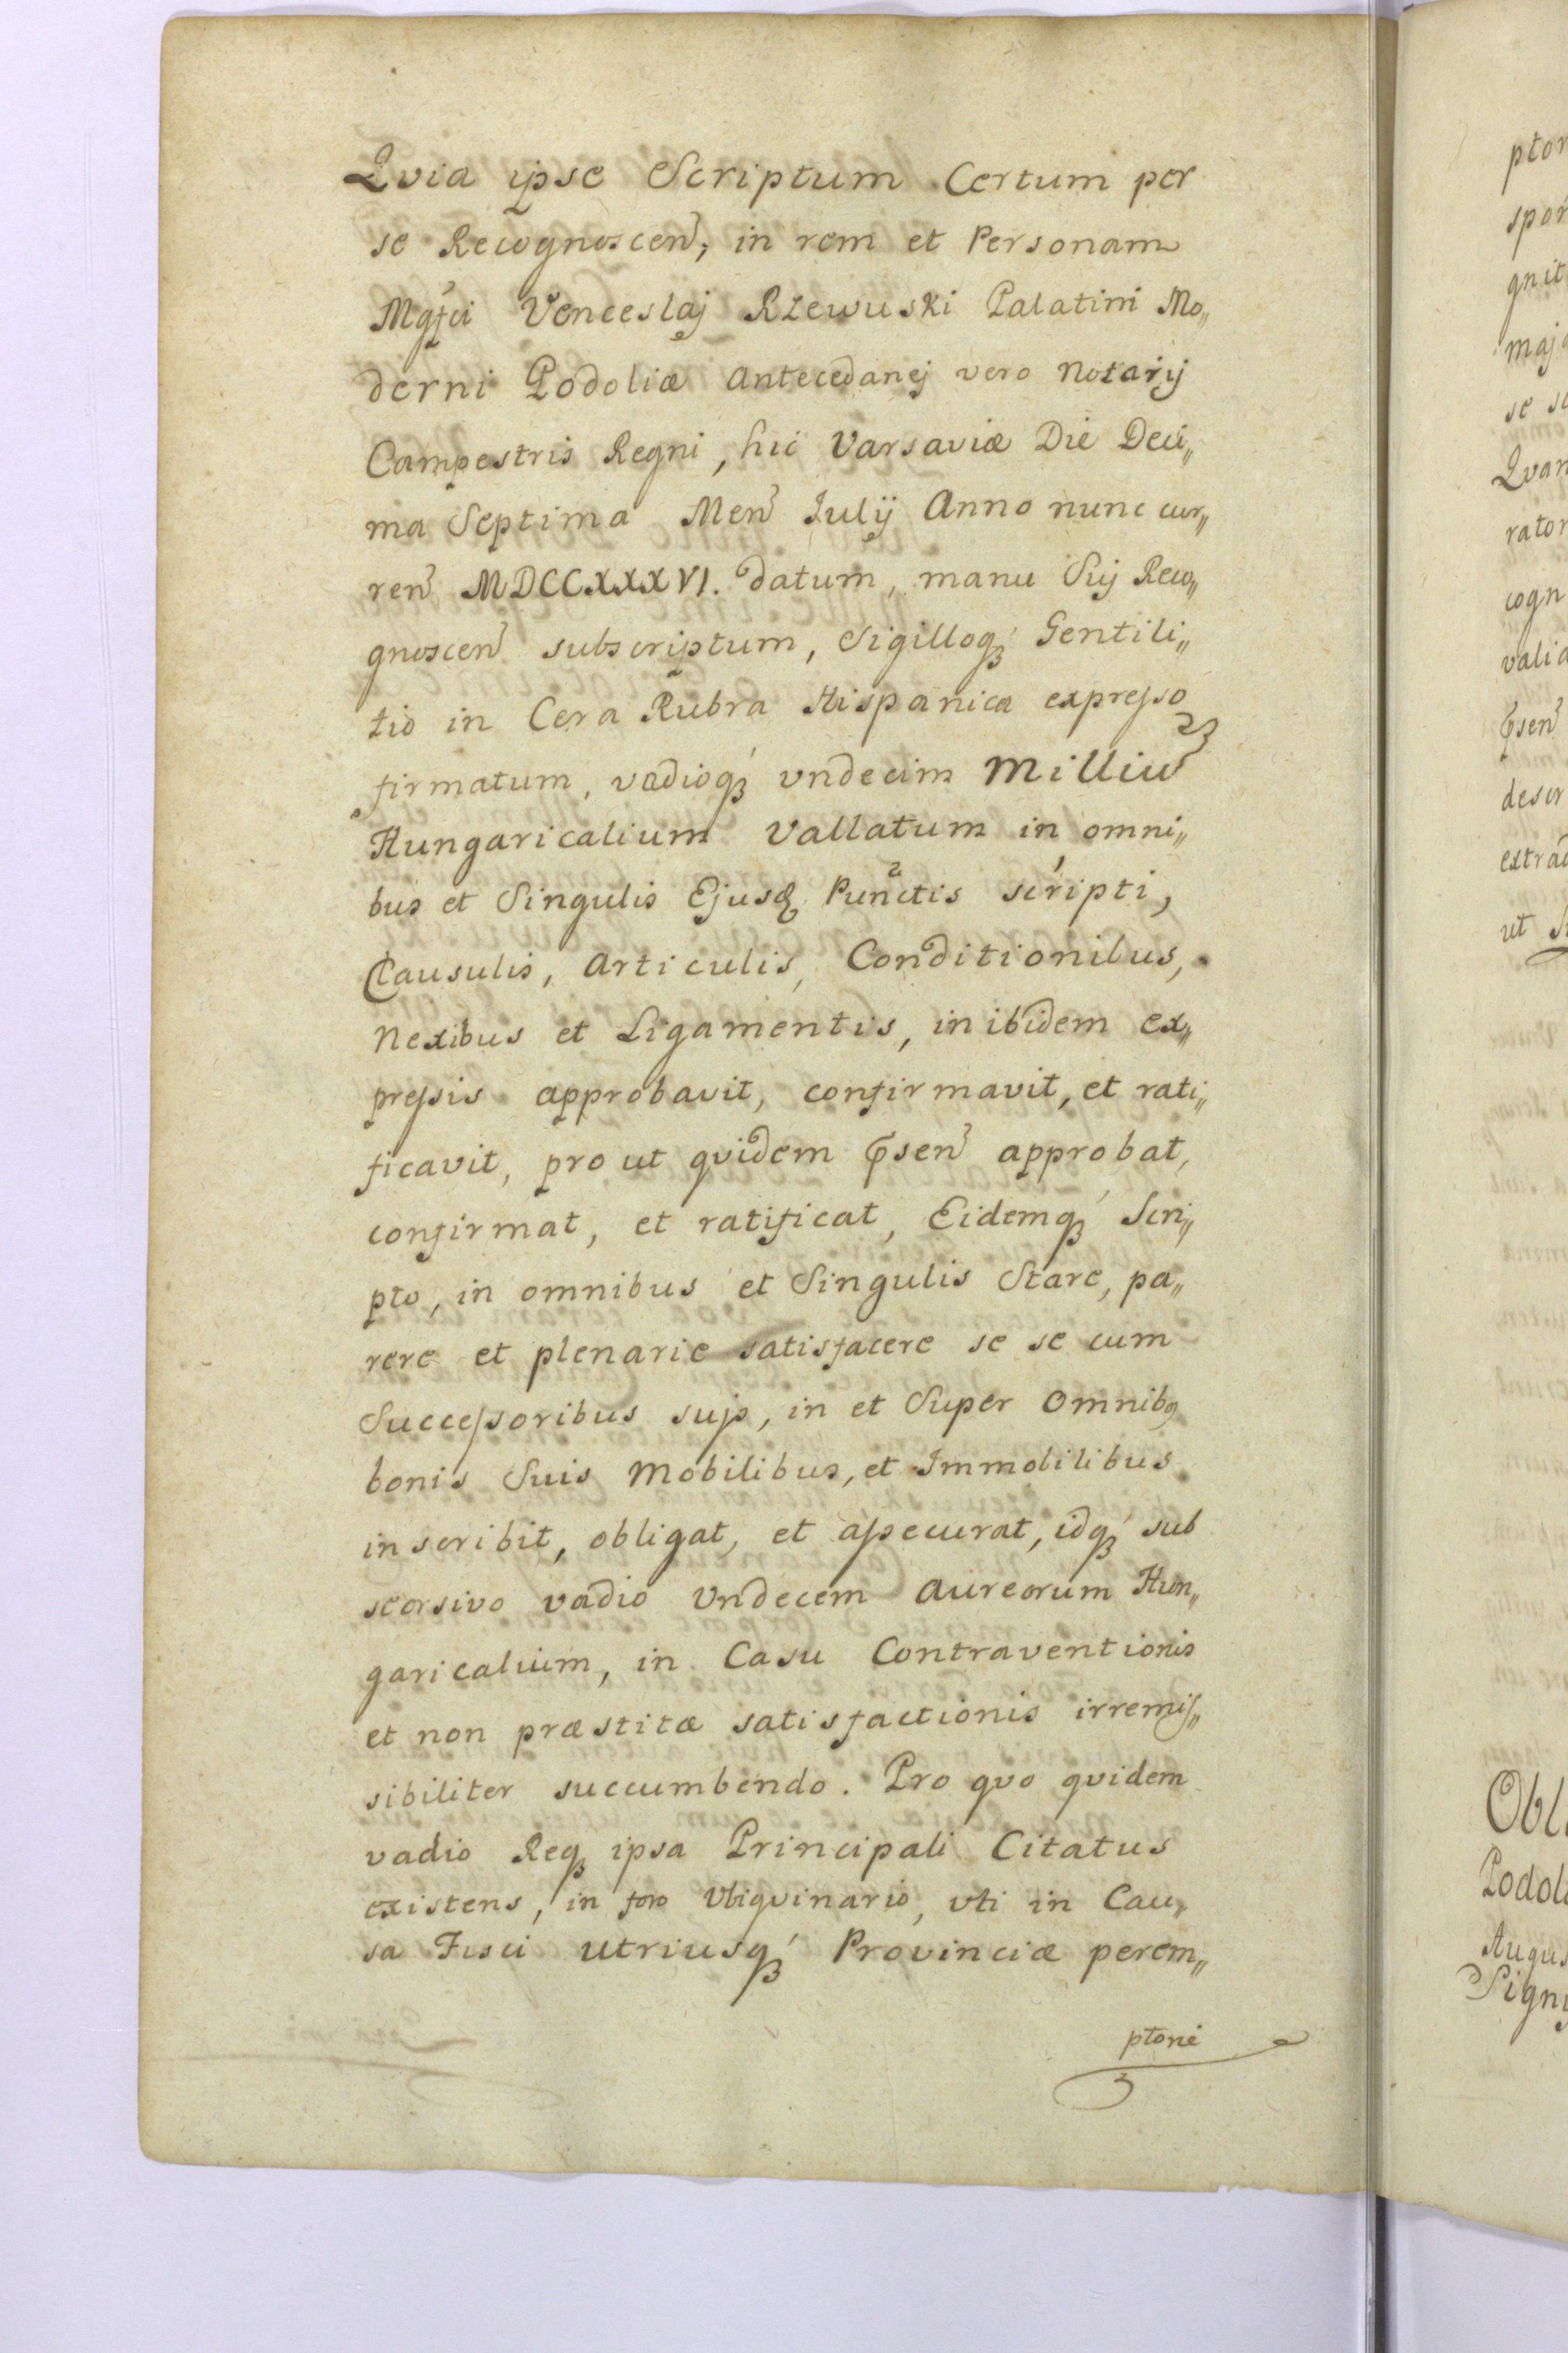 Qvia ipse Scriptum Certum per
se Recognoscen, in rem et Personam
Mgfci Venceslaj Rzewuski Palatini Mo„
derni Podoliæ Antecedanej vero Notarij
Campestris Regni, hic Varsaviæ Die Deci„
ma Septima Men Julij Anno nunc cur„
ren MDCCXXXVI. datum, manu Sui Reco„
gnoscen subscriptum, Sigilloq Gentili„
tio in Cera Rubra Hispanica expresso
firmatum, vadioq vndecim Milliu
Hungaricalium Vallatum in omni„
bus et Singulis Ejusd Punctis scripti,
Clausulis, Articulis, Conditionibus,
Nexibus et Ligamentis, in ibidem ex„
pressis approbavit, confirmavit, et rati„
ficavit, pro ut qvidem psen approbat,
confirmat, et ratificat, Eidemq Scri„
pto, in omnibus et Singulis Stare, pa„
rere et plenarie satisfacere se se cum
Successoribus sujs, in et Super Omnibq
bonis Suis Mobilibus, et Immobilibus
inscribit, obligat, et assecurat, idq sub
seorsivo vadio Vndecem Aureorum Hun„
garicalium, in Casu Contraventionis
et non præstitæ satisfactionis irremis„
sibiliter succumbendo. Pro qvo qvidem
vadio Req ipsa Principali Citatus
existens, in foro Vbiqvinario, vti in Cau„
sa Fisci utriusq Provinciæ perem„
ptorie
ptor
gnit
Qvan
rator
cogn
valia
psen
descr
Podoli
Augus
Signi